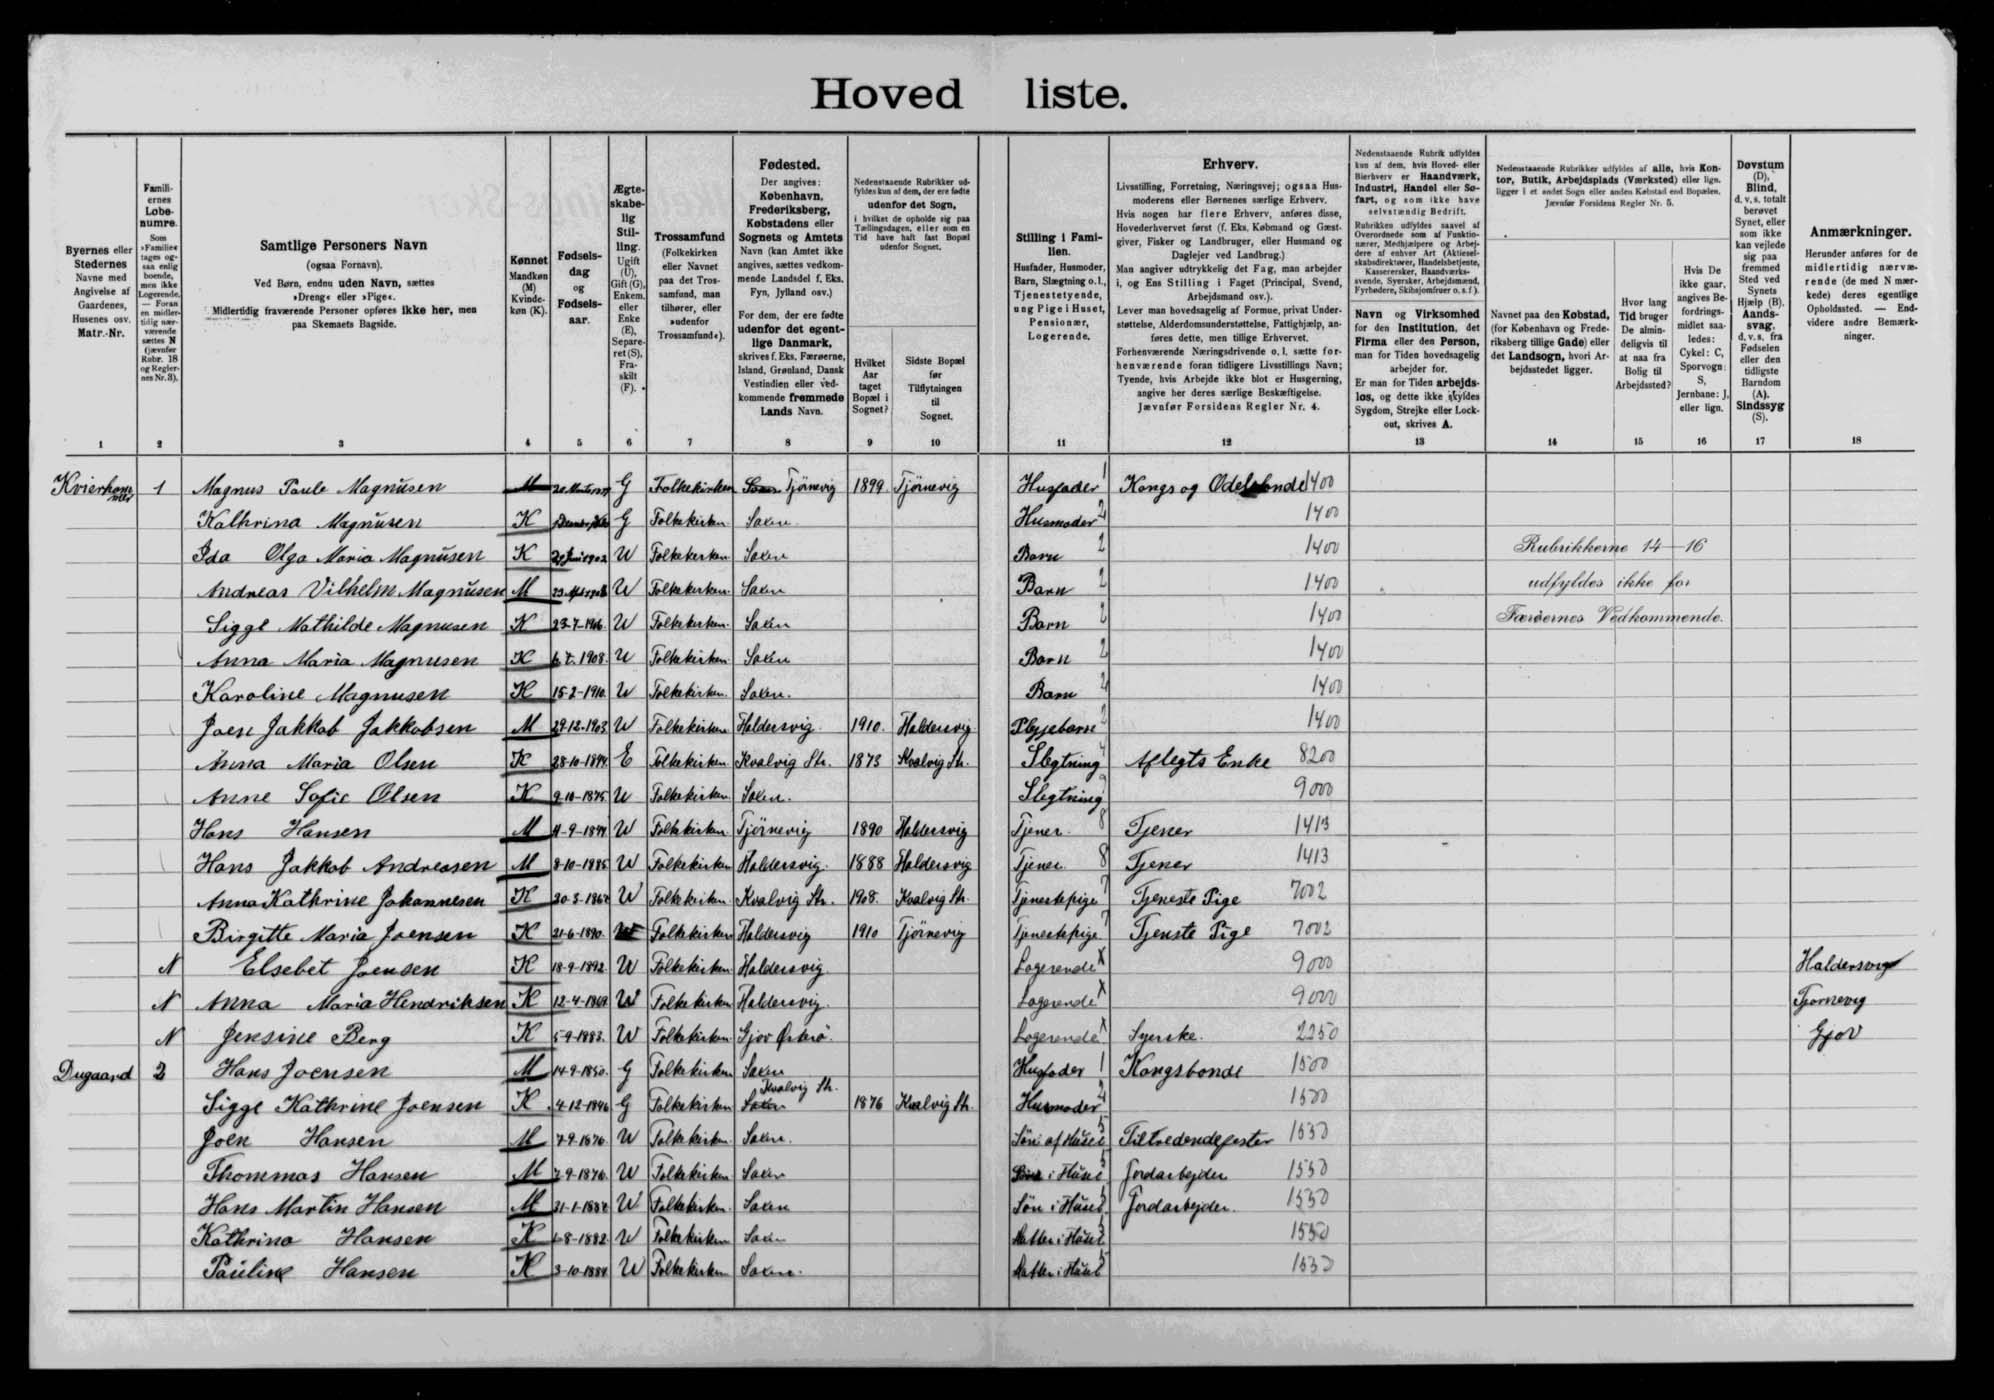 Hoved liste.
Byernes eller Stedernes Navne med Angivelse af Gaardenes, Husenes osv. Matr.-Nr.
Famili-
ernes
Løbe-
numre.
Som
»Familie«
tages og-
saa enlig
boende,
men ikke
Logerende.
— Foran
en midler-
tidig nær-
værende
sættes N
(jævnfør
Rubr. 18
og Regler-
nes Nr. 3).
Samtlige Personers Navn
(ogsaa Fornavn).
Ved Børn, endnu uden Navn, sættes
»Dreng« eller »Pige«.
Midlertidig fraværende Personer opføres ikke her, men
paa Skemaets Bagside.
Kønnet
Mandkøn
(M)
Kvinde-
køn (K).
Fødsels-
dag
og
Fødsels-
aar.
Ægte-
skabe-
lig
Stil-
ling.
Ugift
(U),
Gift (G),
Enkem.
eller
Enke
(E),
Separe-
ret (S),
Fra-
skilt
(F).
Trossamfund
(Folkekirken
eller Navnet
paa det Tros-
samfund, man
tilhører, eller
»udenfor
Trossamfund«).
Fødested.
Der angives:
København,
Frederiksberg,
Købstadens eller
Sognets og Amtets
Navn (kan Amtet ikke
angives, sættes vedkom-
mende Landsdel f. Eks.
Fyn, Jylland osv.)
For dem, der ere fødte
udenfor det egent-
lige Danmark,
skrives f. Eks. Færøerne,
Island, Grønland, Dansk
Vestindien eller ved-
kommende fremmede
Lands Navn.
Nedenstaaende Rubrikker ud-
fyldes kun af dem, der ere fødte
udenfor det Sogn,
i hvilket de opholde sig paa
Tællingsdagen, eller som en
Tid have haft fast Bopæl
udenfor Sognet.
Hvilket
Aar
taget
Bopæl i
Sognet?
Sidste Bopæl
før
Tilflytningen
til
Sognet.
Stilling i Fami-
lien.
Husfader, Husmoder,
Barn, Slægtning o.l.,
Tjenestetyende,
ung Pige i Huset,
Pensionær,
Logerende.
Erhverv.
Livsstilling, Forretning, Næringsvej; ogsaa Hus-
moderens eller Børnenes særlige Erhverv.
Hvis nogen har flere Erhverv, anføres disse,
Hovederhvervet først (f. Eks. Købmand og Gæst-
giver, Fisker og Landbruger, eller Husmand og
Daglejer ved Landbrug.)
Man angiver udtrykkelig det Fag, man arbejder
i, og Ens Stilling i Faget (Principal, Svend,
Arbejdsmand osv.).
Lever man hovedsagelig af Formue, privat Under-
støttelse, Alderdomsunderstøttelse, Fattighjælp, an-
føres dette, men tillige Erhvervet.
Forhenværende Næringsdrivende o. l. sætte for-
henværende foran tidligere Livsstillings Navn;
Tyende, hvis Arbejde ikke blot er Husgerning,
angive her deres særlige Beskæftigelse.
Jævnfør Forsidens Regler Nr. 4.
Nedenstaaende Rubrik udfyldes
kun af dem, hvis Hoved- eller
Bierhverv er Haandværk,
Industri, Handel eller Sø-
fart, og som ikke have
selvstændig Bedrift.
Rubrikken udfyldes saavel af
Overordnede som af Funktio-
nærer, Medhjælpere og Arbej-
dere af enhver Art (Aktiesel-
skabsdirektører, Handelsbetjente,
Kassererersker, Haandværks-
svende, Syersker, Arbejdsmænd,
Fyrbødere, Skibsjomfruer o. s. f.).
Navn og Virksomhed
for den Institution, det
Firma eller den Person,
man for Tiden hovedsagelig
arbejder for.
Er man for Tiden arbejds-
løs, og dette ikke skyldes
Sygdom, Strejke eller Lock-
out, skrives A.
Nedenstaaende Rubrikker udfyldes af alle, hvis Kon-
tor, Butik, Arbejdsplads (Værksted) eller lign.
ligger i et andet Sogn eller anden Købstad end Bopælen.
Jævnfør Forsidens Regler Nr. 5.
Navnet paa den Købstad,
(for København og Frede-
riksberg tillige Gade) eller
det Landsogn, hvori Ar-
bejdsstedet ligger.
Hvor lang
Tid bruger
De almin-
deligvis til
at naa fra
Bolig til
Arbejdssted?
Hvis De
ikke gaar,
angives Be-
fordrings-
midlet saa-
ledes:
Cykel: C,
Sporvogn:
S,
Jernbane: J,
eller lign.
Døvstum
(D),
Blind,
d. v. s. totalt
berøvet
Synet, eller
som ikke
kan vejlede
sig paa
fremmed
Sted ved
Synets
Hjælp (B).
Aands-
svag,
d. v. s. fra
Fødselen
eller den
tidligste
Barndom
(A).
Sindssyg
(S).
Anmærkninger.
Herunder anføres for de
midlertidig nærvæ-
rende (de med N mær-
kede) deres egentlige
Opholdssted. — End-
videre andre Bemærk-
ninger.
1 2 3 4 5 6 7 8 9 10 11 12 13 14 15 16 17 18
Kvierham 1 Magnus Paule Magnusen M G Folkekirken Tjörnevig 1899 Tjörnevig Husfader 1 Kongs og Odelsbonde 1400
Kathrina Magnusen K G Folkekirken Saxen Husmoder 2 1400
Ida Olga Maria Magnusen K U Folkekirken Saxen Barn 2 1400 Rubrikkerne 14—16
Andreas Vilhelm Magnusen M U Folkekirken Saxen Barn 2 1400 udfyldes ikke for
Sigge Mathilde Magnusen K 23-7-1906 U Folkekirken Saxen Barn 2 1400 Færöernes Vedkommende.
Anna Maria Magnusen K 1908 U Folkekirken Saxen Barn 2 1400
Karoline Magnusen K 15-2-1910 U Folkekirken Saxen. Barn 2 1400
Joen Jakkob Jakkobsen M 29-12-1903 U Folkekirken Haldersvig 1910. Haldersvig Plejebarn 2 1400
Anna Maria Olsen K E Folkekirken Kvalvig Str. 1873 Kvalvig Str. Slegtning 4 Aflegts Enke 8200
Anne Sofie Olsen K 9-10-1875 U Folkekirken Saxen. Slegtning 9000
Hans Hansen M U Folkekirken Tjörnevig 1890 Haldersvig Tjener 8 Tjener 1413
Hans Jakkob Andreasen M 8-10-1885 U Folkekirken Haldersvig 1888 Haldersvig Tjener 8 Tjener 1413
Anna Kathrine Johannesen K U Folkekirken Kvalvig Str. 1908. Kvalvig Str. Tjenestepige 7 Tjeneste Pige 7002
Birgitte Maria Joensen K 21-6-1890 U Folkekirken Haldersvig 1910 Tjörnevig Tjenestepige 7 Tjenste Pige 7002
N Elsebet Joensen K 18-9-1892 U Folkekirken Haldersvig Logerende X 9000 Haldersvig
N Anna Maria Hendriksen K U Folkekirken Haldersvig. Logerende X 9000 Tjornevig
N Jensine Berg K 5-9-1883. U Folkekirken Gjov Österö. Logerende X Syerske. 2250 Gjov
Dugaard 2 Hans Joensen M 14-9-1850. G Folkekirken Saxen Husfader 1 Kongsbonde 1500
Sigge Kathrine Joensen K 4-12-1846 G Folkekirken Kvalvig Str. 1876 Kvalvig Str. Husmoder 2 1500
Joen Hansen M 7-9-1876 U Folkekirken Saxen. Sön af Huset 5 Tiltrædendefæster 1550
Thommas Hansen M 7-9-1876. U Folkekirken Saxen Sön i Huset 5 Jordarbejder 1550
Hans Martin Hansen M U Folkekirken Saxen Sön i Huset 5 Jordarbejder. 1550
Kathrina Hansen K U Folkekirken Saxen Datter i Huset 5 1550
Pauline Hansen K 3-10-1884 U Folkekirken Saxen. Datter i Huset 5 1550